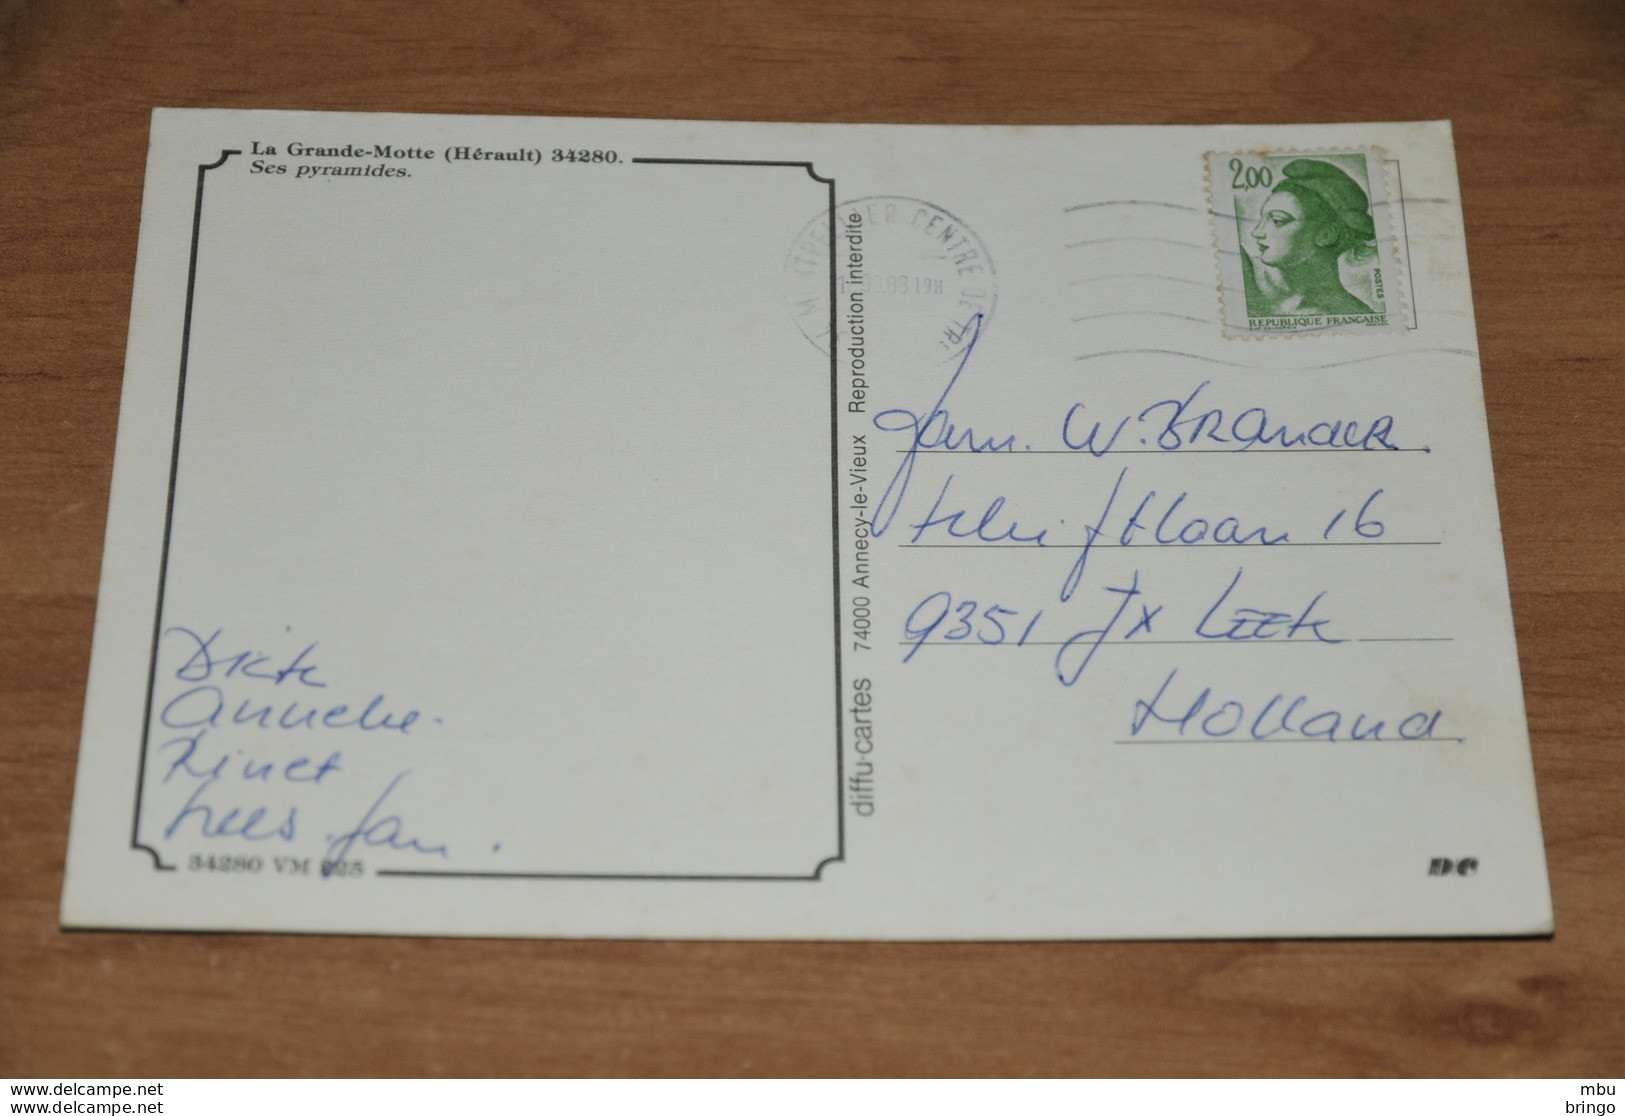 La Grande-Motte (Hérault) 34280.
Ses pyramides.
Dick
Anneke.
Rinet
Kees. Jan.
34280 VM 225
diffu-cartes 74000 Annecy-le-Vieux Reproduction interdite
CENTRE DE TRI
2,00
POSTES
REPUBLIQUE FRANCAISE
fam. W. BRander.
Schiftlaan 16
9351 JX Leek
Holland.
DC
www.delcampe.net
www.delcampe.net
mbu
bringo